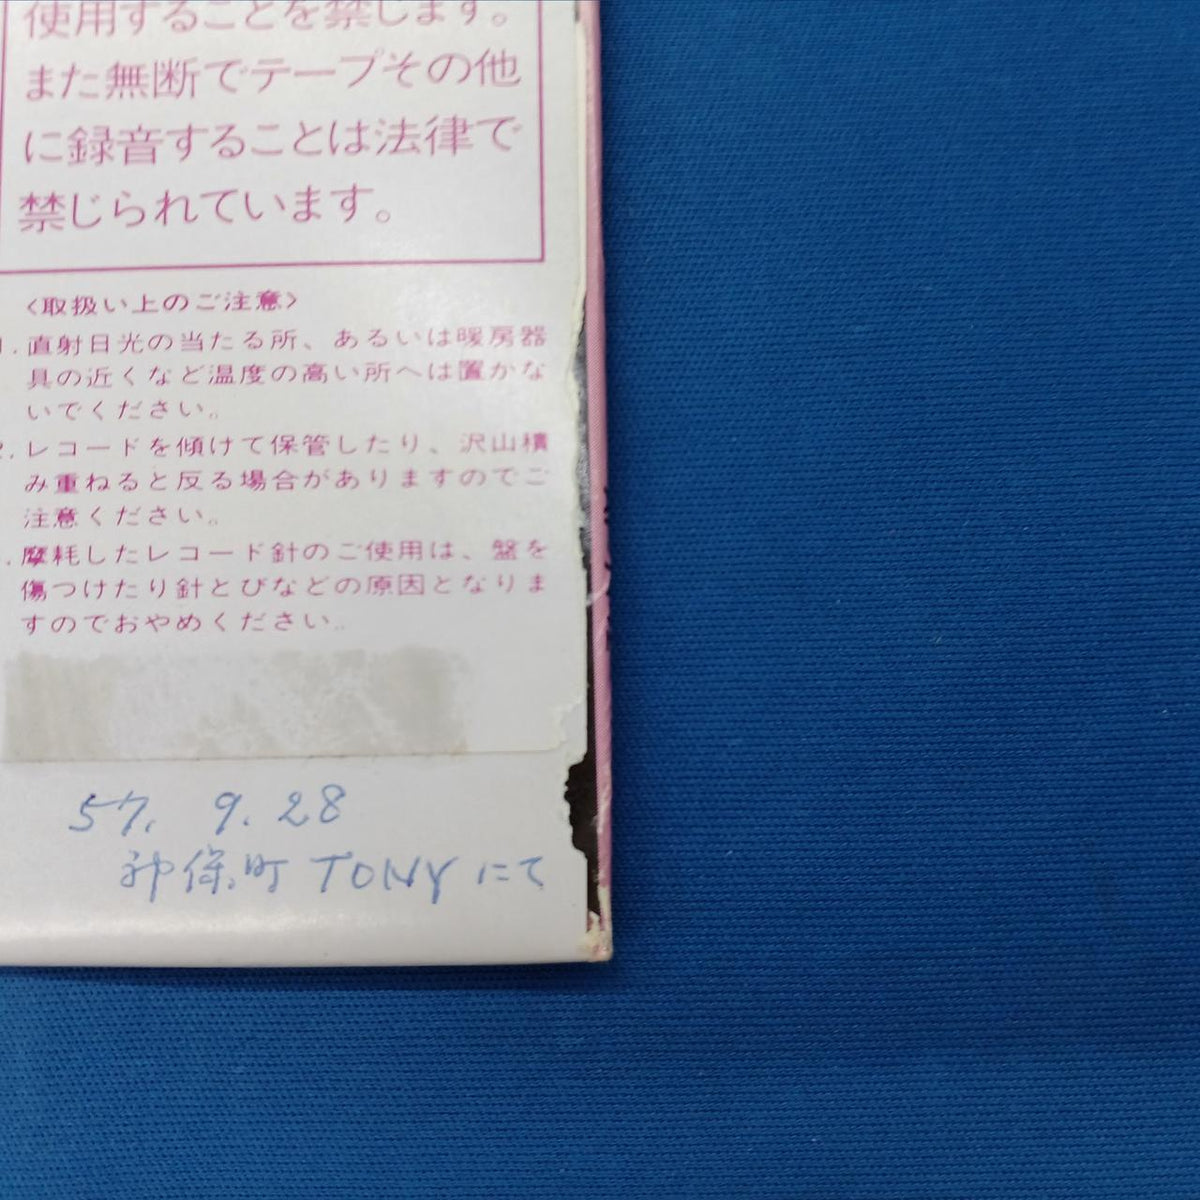 使用することを禁じます。
また無断でテープその他
に録音することは法律で
禁じられています。
〈取扱い上のご注意〉
1.直射日光の当たる所、あるいは暖房器
具の近くなど温度の高い所へは置かな
いでください。
2.レコードを傾けて保管したり、沢山積
み重ねると反る場合がありますのでご
注意ください。
.摩耗したレコード針のご使用は、盤を
傷つけたり針とびなどの原因となりま
すのでおやめください。
57. 9. 28
神保町 TONYにて